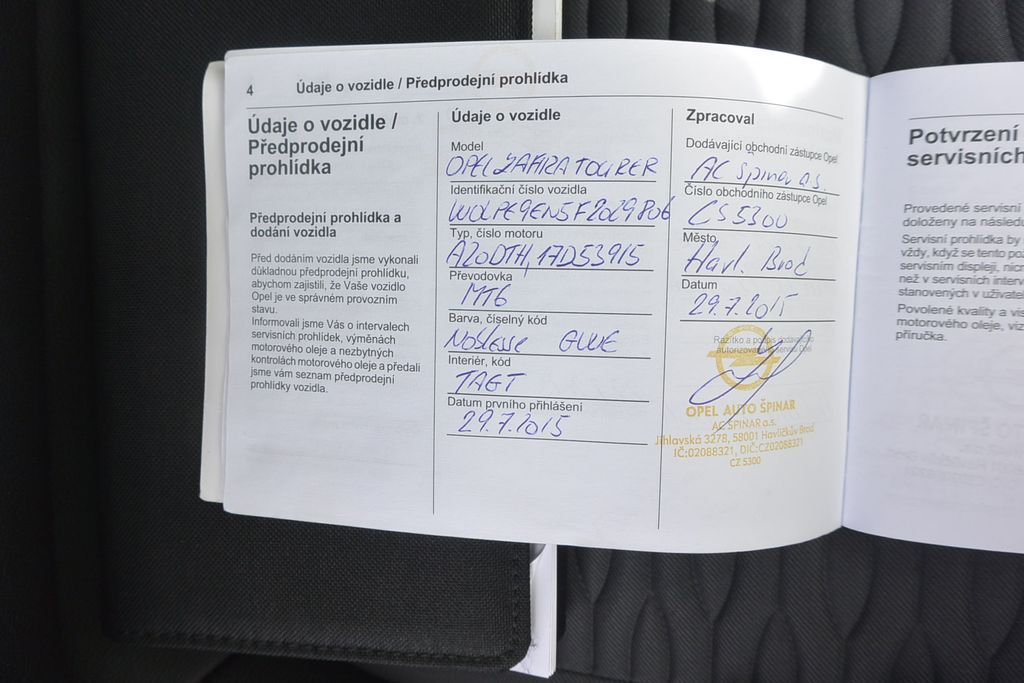 4 Údaje o vozidle / Předprodejní prohlídka
Údaje o vozidle /
Předprodejní
prohlídka
Předprodejní prohlídka a
dodání vozidla
Před dodáním vozidla jsme vykonali
důkladnou předprodejní prohlídku,
abychom zajistili, že Vaše vozidlo
Opel je ve správném provozním
stavu.
Informovali jsme Vás o intervalech
servisních prohlídek, výměnách
motorového oleje a nezbytných
kontrolách motorového oleje a předali
jsme vám seznam předprodejní
prohlídky vozidla.
Údaje o vozidle
Model
OPEL ZAFIRA TOURER
Identifikační číslo vozidla
W0LPE9EN5F2029806
Typ, číslo motoru
A20DTH, 17D53915
Převodovka
MT6
Barva, číselný kód
Noblesse GWE
Interiér, kód
TAGT
Datum prvního přihlášení
29.7.2015
Zpracoval
Dodávající obchodní zástupce Opel
AC Špinar a.s.
Číslo obchodního zástupce Opel
CS 5300
Město
Havl. Brod
Datum
29.7.2015
Razítko a podpis dodávajícího
autorizovaného servisu Opel
OPEL AUTO ŠPINAR
AC ŠPINAR a.s.
Jihlavská 3278, 58001 Havlíčkův Brod
IČ:02088321, DIČ:CZ02088321
CZ 5300
Potvrzení
servisních
Provedené servisní
doloženy na následu
Servisní prohlídka by
vždy, když se tento po
servisním displeji, nicm
než v servisních interv
stanovených v uživate
Povolené kvality a vis
motorového oleje, viz
příručka.